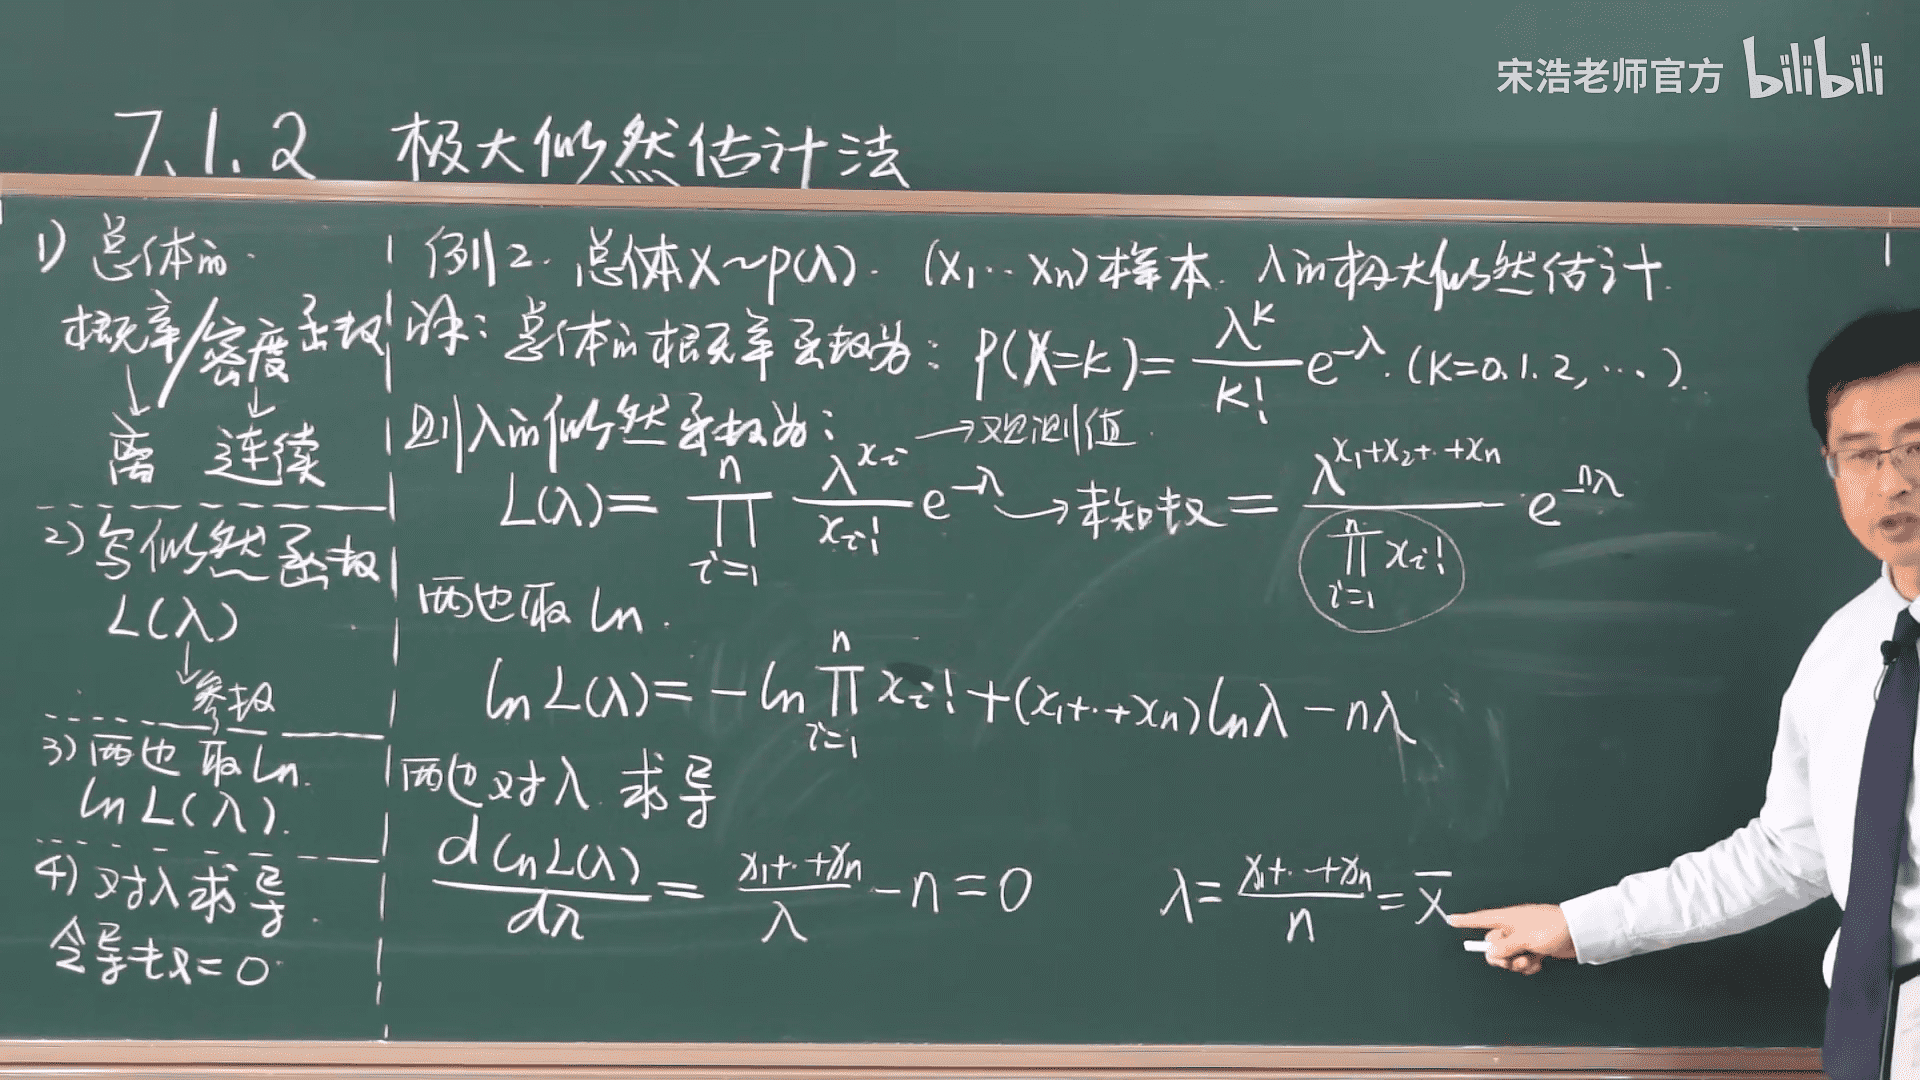 宋浩老师官方 bilibili
7.1.2 极大似然估计法
1) 总体的.
概率/密度函数
↓ ↓
离 连续
2) 写似然函数
L(λ)
↓
参数
3) 两边取ln.
ln L(λ).
4) 对λ求导.
令导数=0.
例2. 总体X~P(λ). (X₁…Xₙ)样本. λ的极大似然估计.
解: 总体的概率函数为: P(X=k)= λᵏ/k! e^(-λ). (k=0.1.2,…).
则λ的似然函数为: →观测值.
L(λ)= ∏_{i=1}^{n} λ^(xᵢ)/xᵢ! e^(-λ) →未知数 = λ^(x₁+x₂+..+xₙ)/∏_{i=1}^{n} xᵢ! · e^(-nλ)
两边取ln.
ln L(λ)= -ln ∏_{i=1}^{n} xᵢ! + (x₁+..+xₙ)lnλ - nλ
两边对λ求导
d ln L(λ)/dλ = (x₁+..+xₙ)/λ - n = 0 λ= (x₁+..+xₙ)/n = X̄